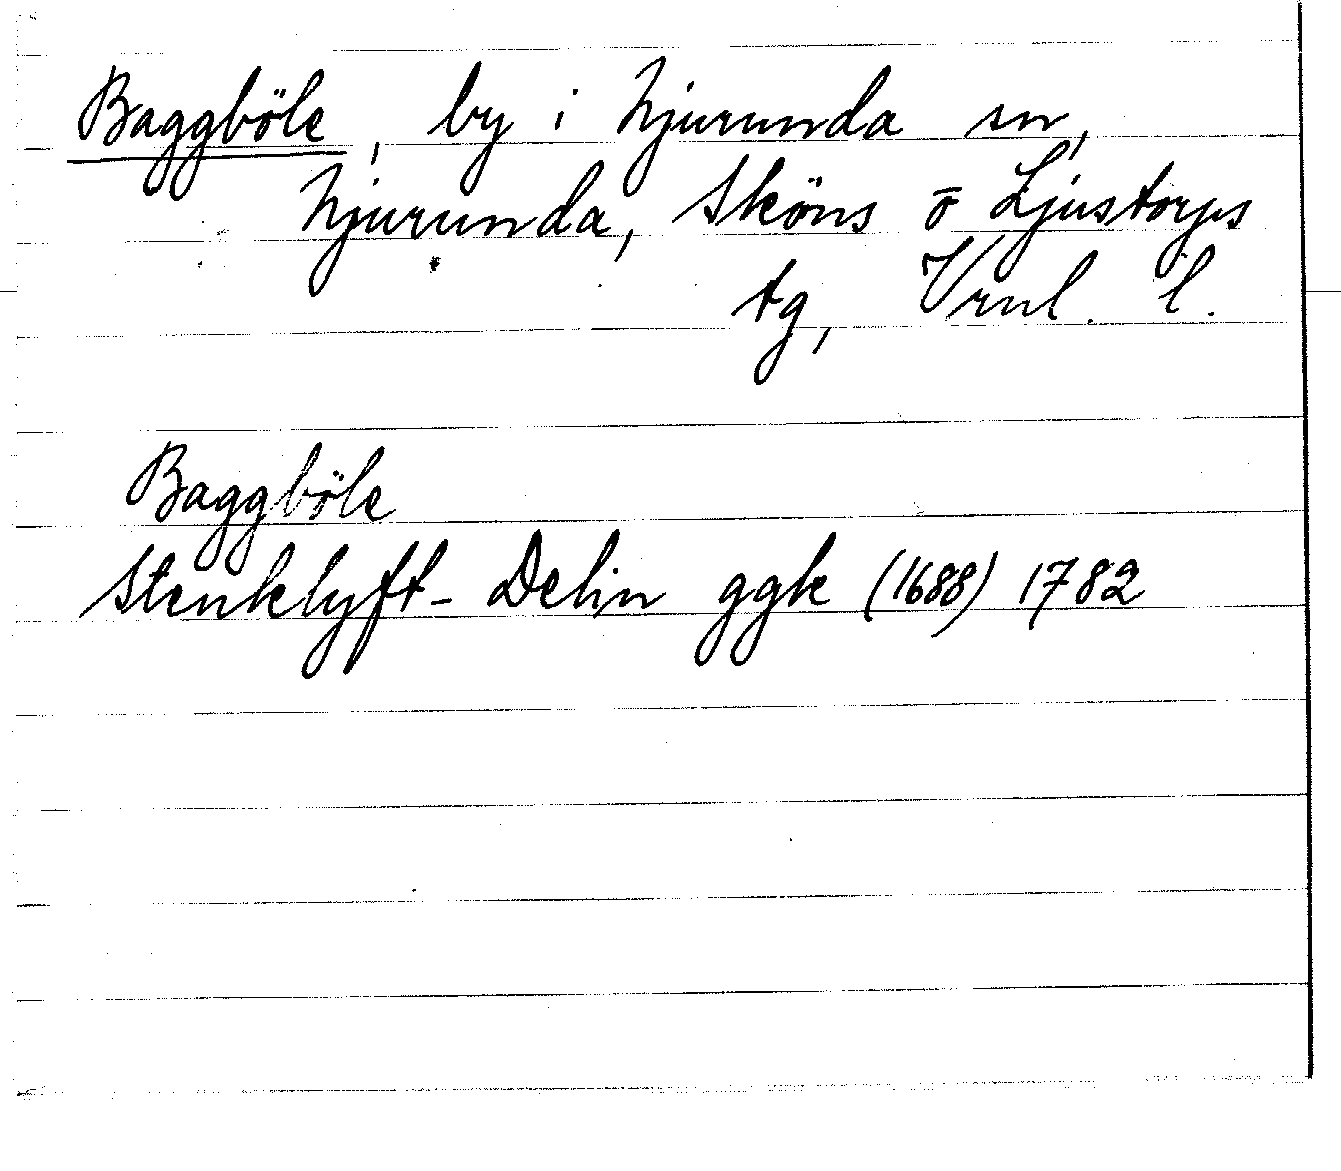 Baggböle, by i Njurunda sn,
Njurunda, Sköns o Ljustorps
tg, Vrnl. l.
Baggböle
Stenklyft - Delin ggk (1688) 1782